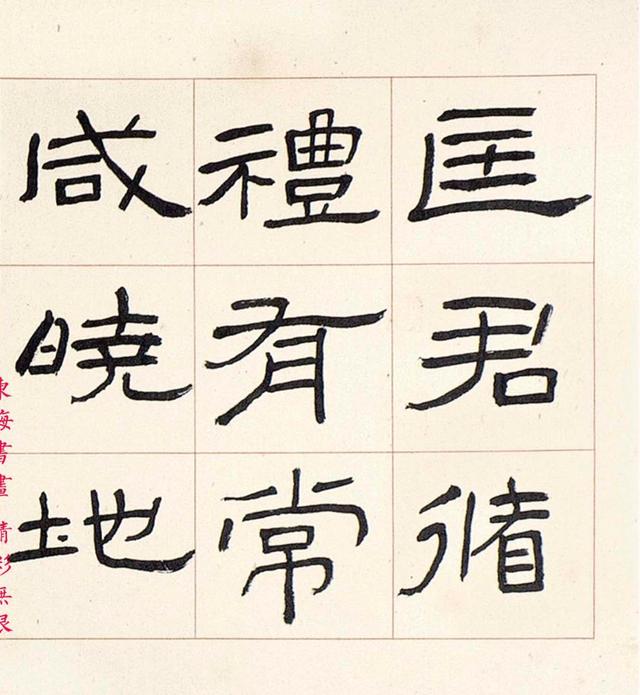 匡君循
禮有常
咸曉地
東海書畫 精彩無限